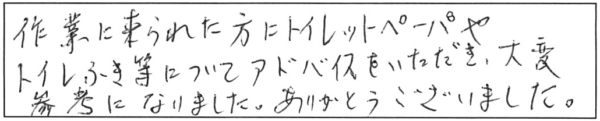 作業に来られた方にトイレットペーパや
トイレふき等についてアドバイスをいただき、大変
参考になりました。ありがとうございました。